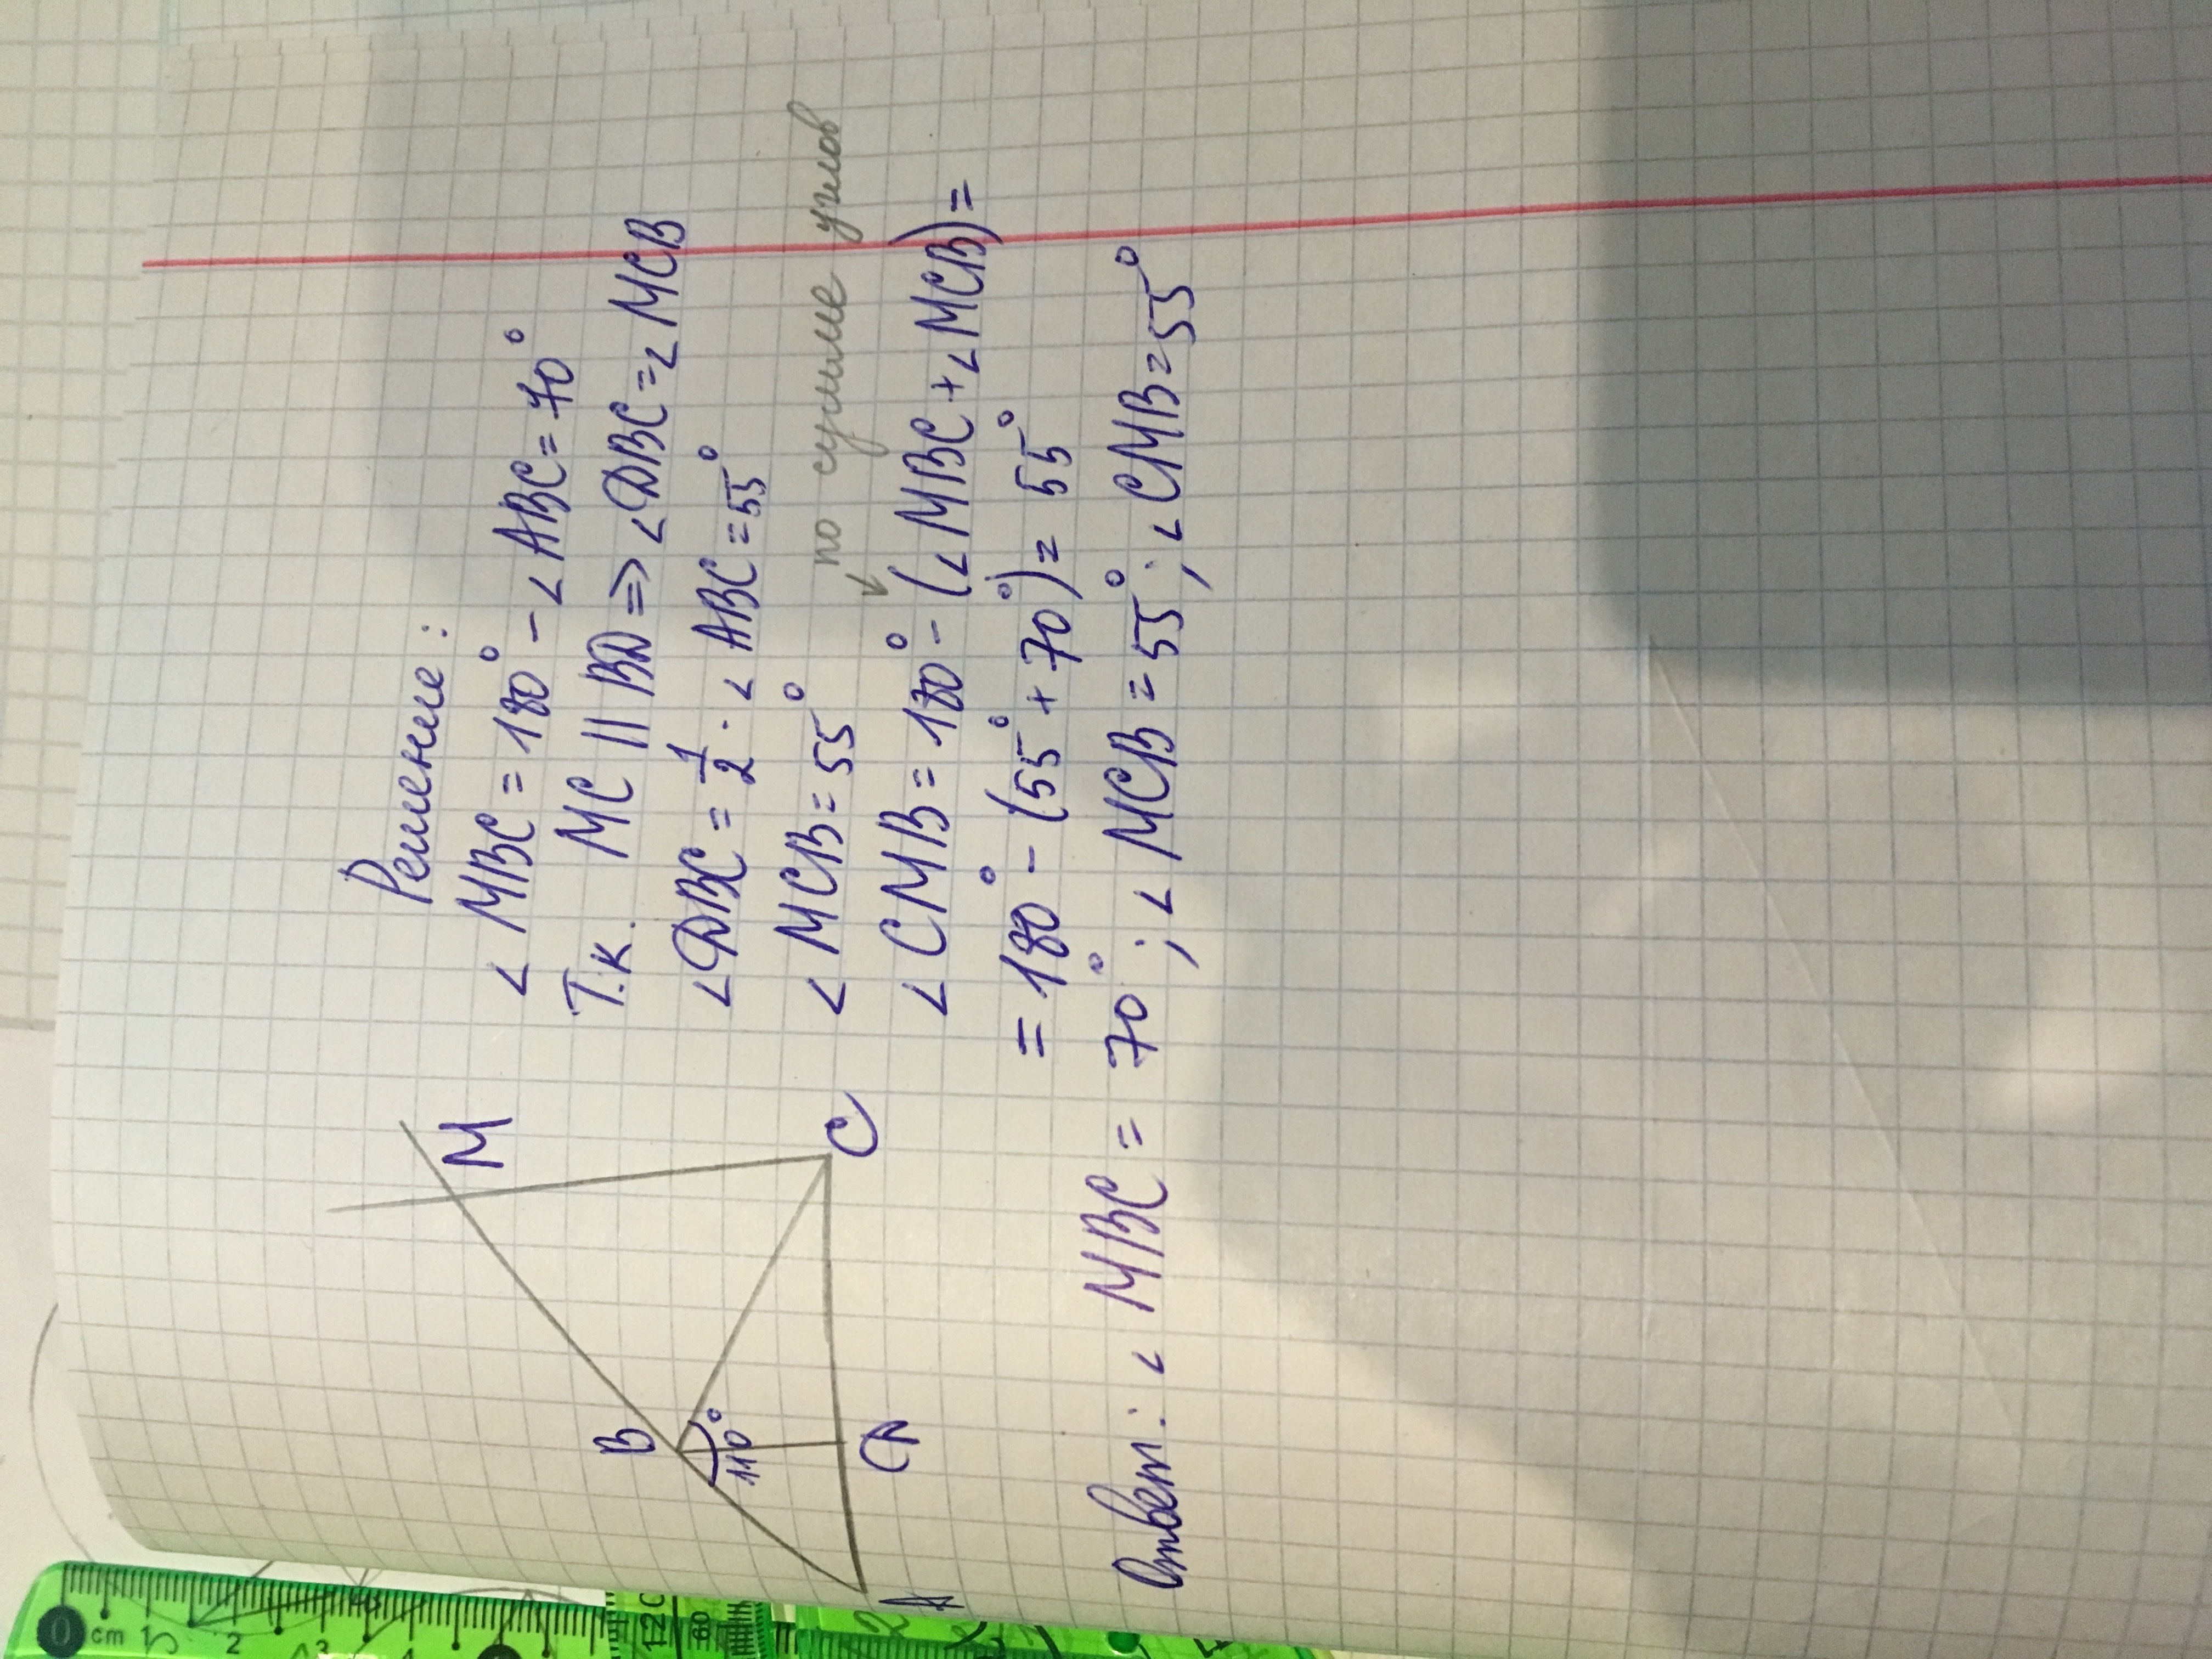 Решение:
∠ MBC = 180° - ∠ ABC = 70°
Т.к. MC || BD => ∠DBC = ∠ MCB
∠DBC = 1/2 · ∠ ABC = 55°
∠ MCB = 55°
по сумме углов
∠ CMB = 180° - (∠ MBC + ∠ MCB) =
= 180° - (55° + 70°) = 55°
M
B
110°
C
D
A
Ответ: ∠ MBC = 70°; ∠ MCB = 55°; ∠ CMB = 55°
0 cm 1 2 3 4
120
60